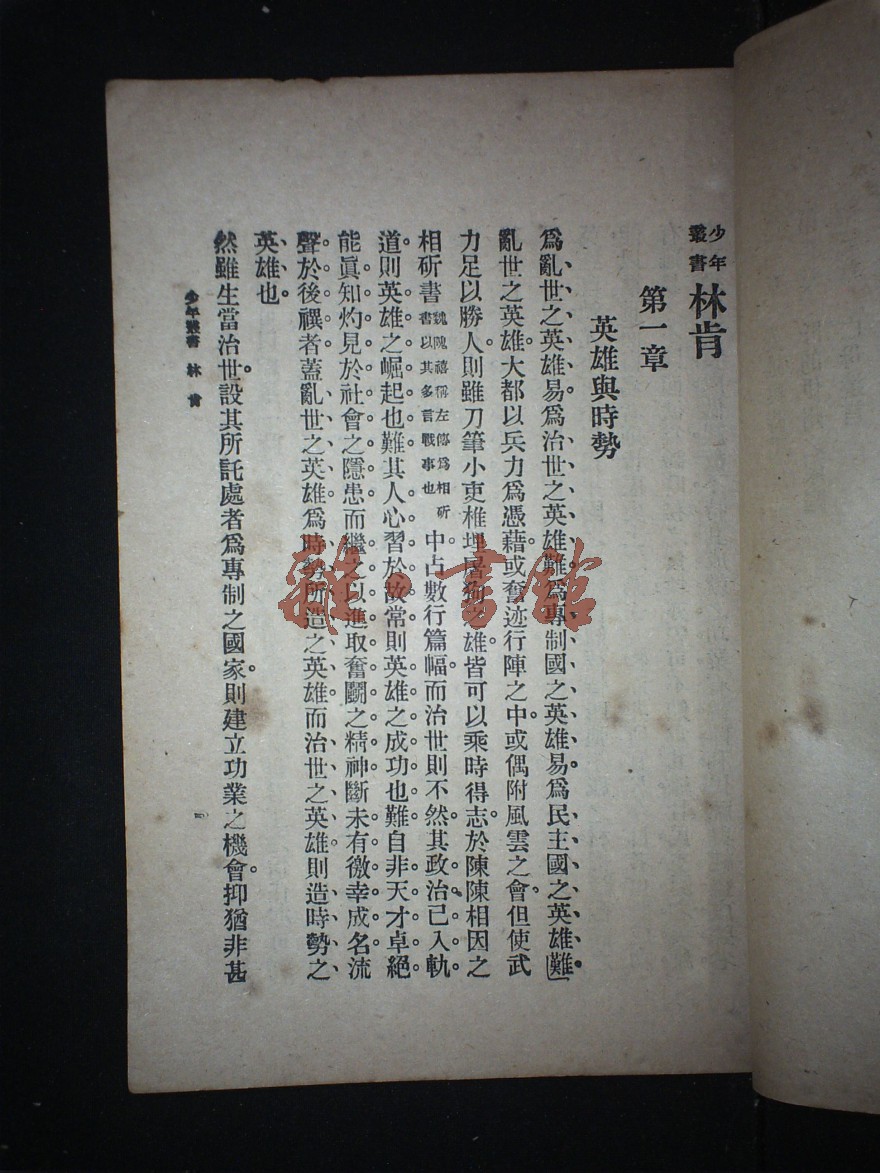 少年叢書 林肯
第一章
英雄與時勢
為亂世之英雄易。為治世之英雄難。為專制國之英雄易。為民主國之英雄難。
亂世之英雄。大都以兵力為憑藉。或奮迹行陣之中。或偶附風雲之會。但使武
力足以勝人。則雖刀筆小吏椎埋屠狗之雄。皆可以乘時得志於陳陳相因之
相斫書魏隗禧稱左傳為相斫書以其多言戰事也中占數行篇幅。而治世則不然。其政治已入軌
道。則英雄之崛起也難。其人心習於故常。則英雄之成功也難。自非天才卓絕。
能真知灼見於社會之隱患。而繼之以進取奮鬭之精神。斷未有徼幸成名。流
聲於後禩者。蓋亂世之英雄。為時勢所造之英雄。而治世之英雄。則造時勢之
英雄也。
然雖生當治世。設其所託處者為專制之國家。則建立功業之機會。抑猶非甚
少年叢書 林肯
雜·書館